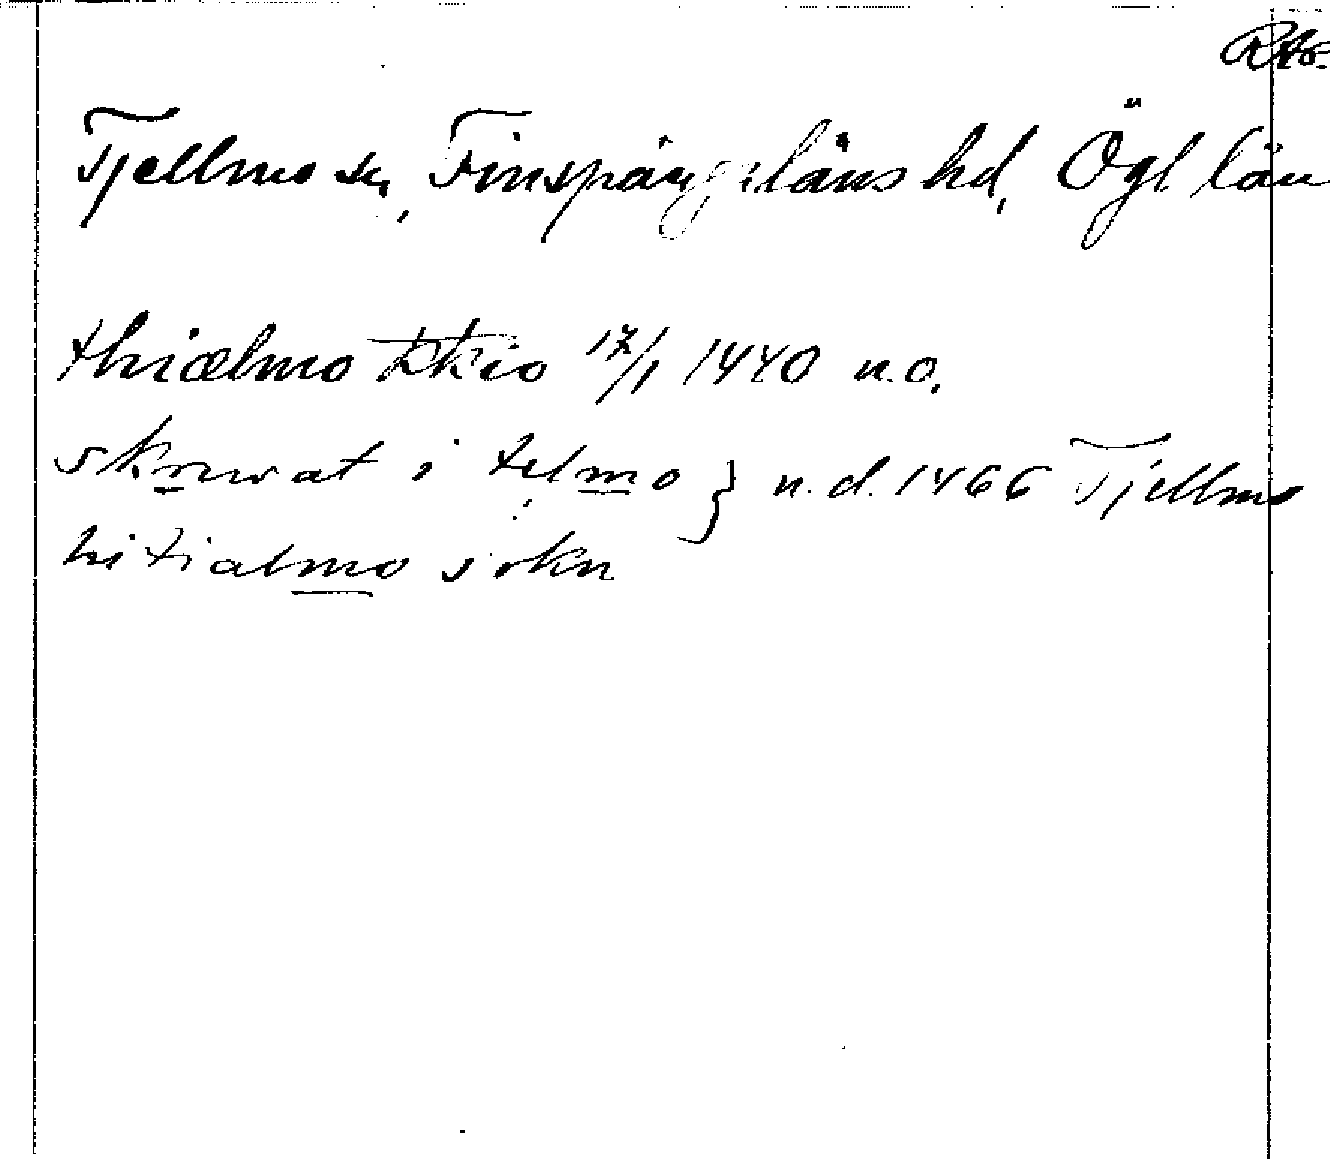 RAö.
Tjellmo sn, Finspångaläns hd, Ögl län
thiælmo kkio 17/1 1440 u.o.
skrwat i telmo } u.d. 1466 Tjellmo
hi tialmo sokn